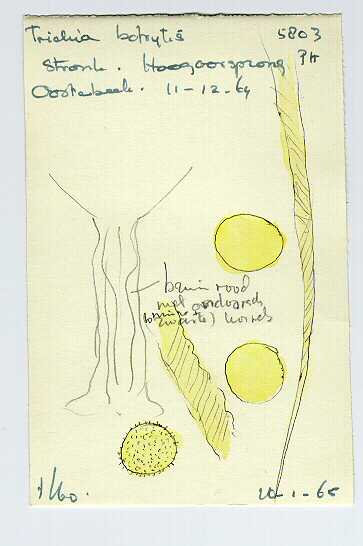 Trichia botrytis 5803
Stronk. Hoog oorsprong PH
Oosterbeek. 11-12-64
bruin rood
met
korrels
1/60.
20-1-65